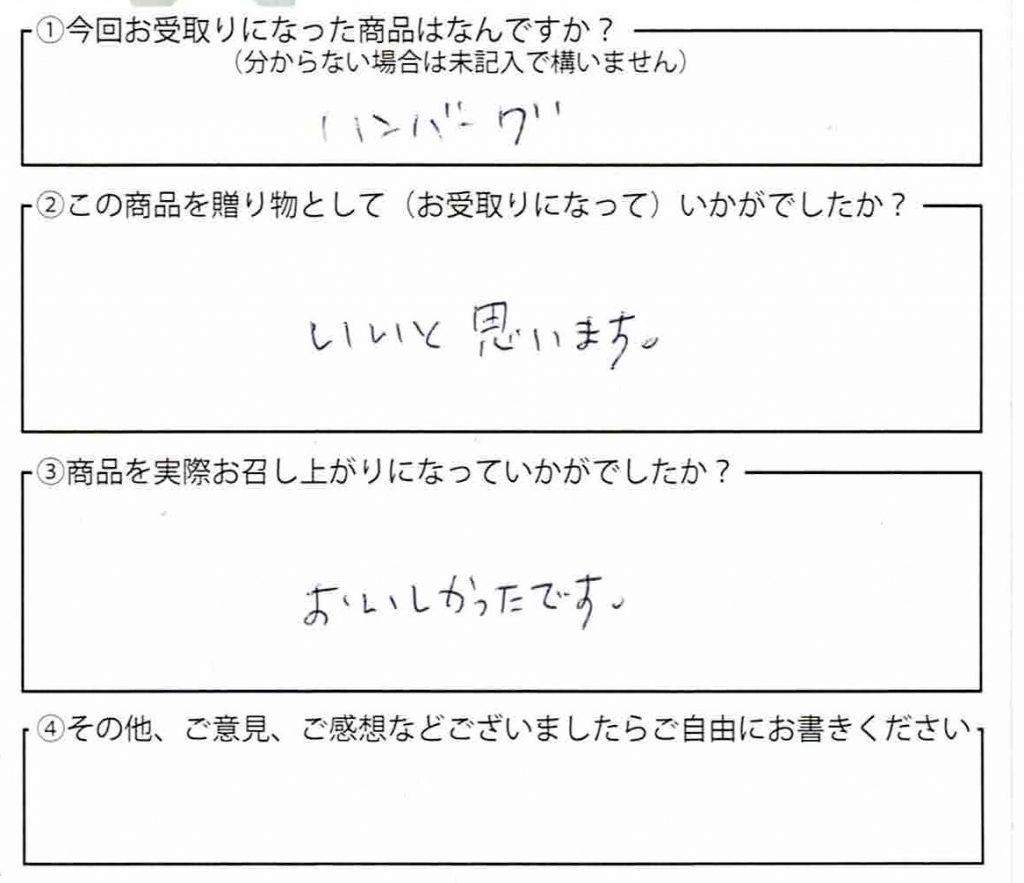 ①今回お受取りになった商品はなんですか？
（分からない場合は未記入で構いません）
ハンバーグ
②この商品を贈り物として（お受取りになって）いかがでしたか？
いいと思います。
③商品を実際お召し上がりになっていかがでしたか？
おいしかったです。
④その他、ご意見、ご感想などございましたらご自由にお書きください